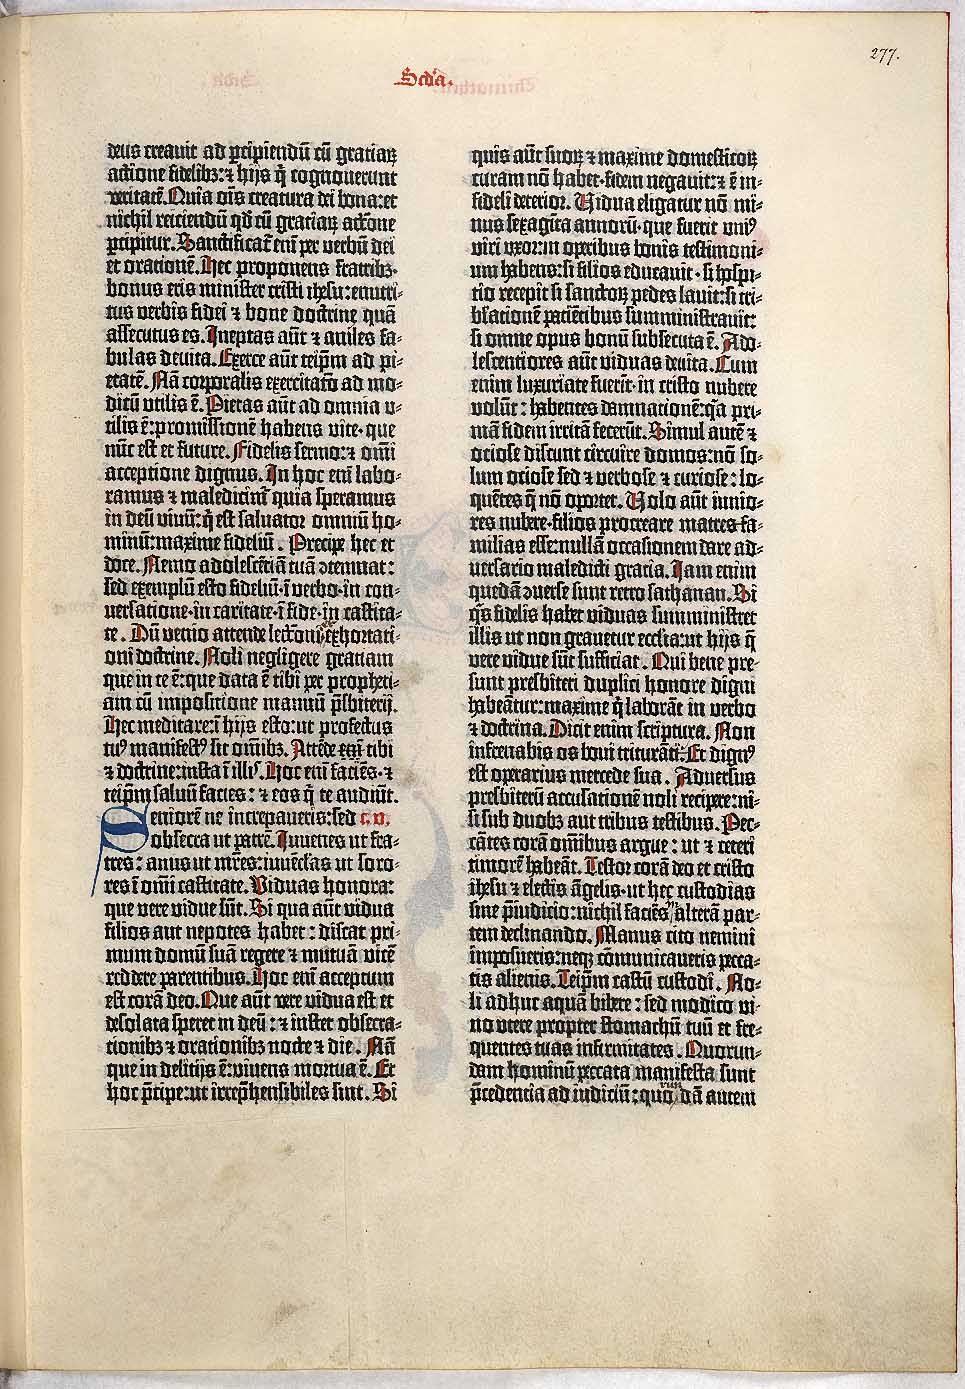 277.
Scďa.
deus creauit ad ꝑcipiendū cū gratiaꝝ
actione fidelibꝫ: ⁊ hijs q̄ cognouerunt
veritatē. Quia oīs creatura dei bona: et
nichil reiciendū qd̄ cū gratiaꝝ actōne
ꝑcipitur. Sanctificat᷑ enī per verbū dei
et orationē. Hec proponens fratribꝫ·
bonus eris minister cristi ihesu: enutri-
tus verbis fidei ⁊ bone doctrine quā
assecutus es. Ineptas aūt ⁊ aniles fa-
bulas deuita. Exerce aūt teip̄m ad pi-
etatē. Nā corporalis exercitatō ad mo-
dicū vtilis ē. Pietas aūt ad omnia v-
tilis ē: promissionē habens vite· que
nūc est et future. Fidelis sermo: ⁊ omī
acceptione dignus. In hoc enī labo-
ramus ⁊ maledicim᷑ quia speramus
in deū viuū: q̄ est saluator omniū ho-
minū: maxime fideliū. Precipe hec et
doce. Nemo adolescētiā tuā ↄtemnat:
sed exemplū esto fideliū· ī verbo· in con-
uersatione· in caritate· ī fide· in castita-
te. Dū venio attende lectōni exhortati-
oni doctrine. Noli negligere gratiam
que in te ē: que data ē tibi per propheti-
am cū impositione manuū p̄sbiterij.
Hec meditare: ī hijs esto: ut profectus
tuꝰ manifestꝰ sit om̄ibꝫ. Attēde tibi
⁊ doctrine: insta ī illis. Hoc enī faciēs· ⁊
teip̄m saluū facies: ⁊ eos q̄ te audiūt.
Seniorē ne increpaueris: sed c. v.
obsecra ut patrē. Iuuenes ut fra-
tres: anus ut m̄res: iuuēclas ut soro-
res ī omī castitate. Viduas honora:
que vere vidue sūt. Si qua aūt vidua
filios aut nepotes habet: discat pri-
mum domū suā regere ⁊ mutuā vicē
reddere parentibus. Hoc enī acceptum
est corā deo. Que aūt vere vidua est et
desolata speret in deū: ⁊ instet obsecra-
tionibꝫ ⁊ orationibꝫ nocte ⁊ die. Nā
que in delitijs ē: viuens mortua ē. Et
hoc p̄cipe: ut irrep̄hensibiles sint. Si
quis aūt suoꝝ ⁊ maxime domesticoꝝ
curam nō habet· fidem negauit: ⁊ ē in-
fideli deterior. Vidua eligatur nō mi-
nus sexagīta annorū· que fuerit vniꝰ
viri vxor: in operibus bonis testimoni-
um habens: si filios educauit· si hospi-
tio recepit si sanctoꝝ pedes lauit: si tri-
bulationē pacientibus sumministrauit:
si omne opus bonū subsecuta ē. Ado-
lescentiores aūt viduas deuita. Cum
enim luxuriate fuerīt· in cristo nubere
volūt: habentes damnationē: q̄a pri-
mā fidem irritā fecerūt. Simul autē ⁊
ociose discunt circuire domos: nō so-
lum ociose sed ⁊ verbose ⁊ curiose: lo-
quētes q̄ nō oportet. Volo aūt iunio-
res nubere· filios procreare matres fa-
milias esse: nullā occasionem dare ad-
uersario maledicti gracia. Iam enim
quedā ↄuerse sunt retro sathanan. Si
q̄s fidelis habet viduas sumministret
illis ut non grauetur eccl̄ia: ut hijs q̄
vere vidue sūt sufficiat. Qui bene pre-
sunt presbiteri duplici honore digni
habeātur: maxime q̄ laborāt in verbo
⁊ doctrina. Dicit enim scriptura. Non
infrenabis os boui triturāti. Et dignꝰ
est operarius mercede sua. Aduersus
presbiterū accusationē noli recipere: ni-
si sub duobꝫ aut tribus testibus. Pec-
cātes corā om̄ibus argue: ut ⁊ ceteri
timorē habeāt. Testor corā deo et cristo
ihesu ⁊ electis āgelis· ut hec custodias
sine p̄iudicio: nichil faciēs alterā par-
tem declinando. Manus cito nemini
imposueris: neqꝫ cōmunicaueris pecca-
tis alienis. Teip̄m castū custodi. No-
li adhuc aquā bibere: sed modico vi-
no vtere propter stomachū tuū et fre-
quentes tuas infirmitates. Quorun-
dam hominū peccata manifesta sunt
p̄cedencia ad iudiciū: quorundā autem